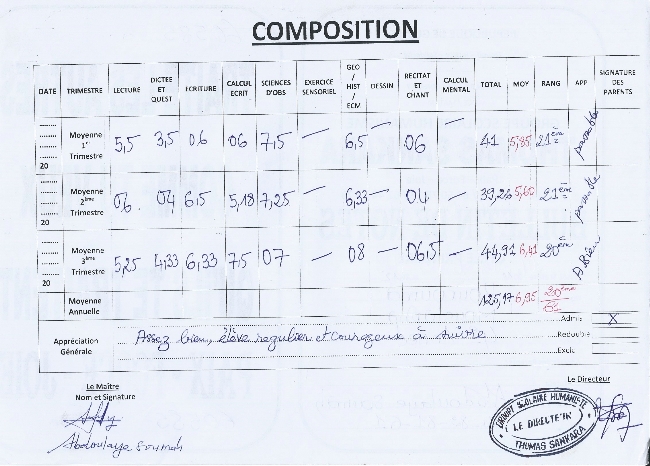 COMPOSITION
DATE TRIMESTRE LECTURE DICTEE ET QUEST ECRITURE CALCUL ECRIT SCIENCES D'OBS EXERCICE SENSORIEL GEO / HIST / ECM DESSIN RECITAT ET CHANT CALCUL MENTAL TOTAL MOY RANG APP SIGNATURE DES PARENTS
20 Moyenne 1er Trimestre 5,5 3,5 06 06 7,5 — 6,5 — 06 — 41 5,85 21ème passable
20 Moyenne 2ème Trimestre 06 04 6,5 5,18 7,25 — 6,33 — 04 — 39,26 5,60 21ème passable
20 Moyenne 3ème Trimestre 5,25 4,33 6,33 7,5 07 — 08 — 06,5 — 44,91 6,41 20è A Bien
Moyenne Annuelle 125,17 6,95 20ème
Admis X
Appréciation Générale Assez bien, élève regulier et courageux à suivre Redouble
Exclu
Le Maître
Nom et Signature
Abdoulaye Soumah
Le Directeur
GROUPE SCOLAIRE HUMANITE
LE DIRECTEUR
THOMAS SANKARA